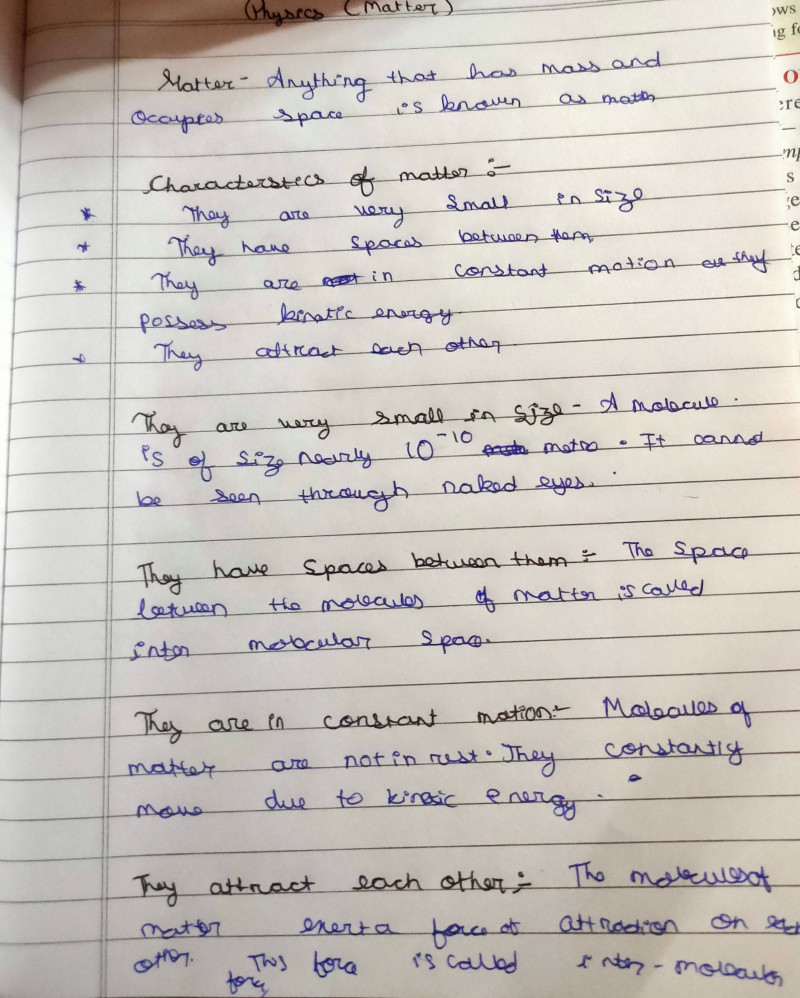 Physics (Matter)
Matter - Anything that has mass and
Occupies space is known as matter
Characterstics of matter :-
* They are very small in size
* They have spaces between them
* They are in constant motion as they
possess kinetic energy
* They attract each other
They are very small in size - A molecule
is of size nearly 10⁻¹⁰ metre. It cannot
be seen through naked eyes.
They have spaces between them :- The space
between the molecules of matter is called
inter molecular space.
They are in constant motion :- Molecules of
matter are not in rest. They constantly
move due to kinetic energy.
They attract each other :- The molecules of
matter exert a force of attraction on each
other. This force is called inter-molecular
force